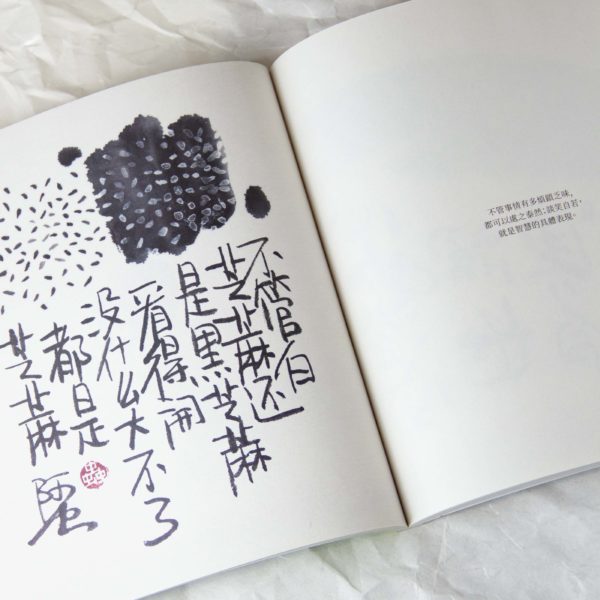 不管白
芝蔴还
是黑芝蔴
看得開
没什么大不了
都是
芝蔴
不管事情有多煩鎖乏味,
都可以處之泰然;談笑自若,
就是智慧的具體表現。